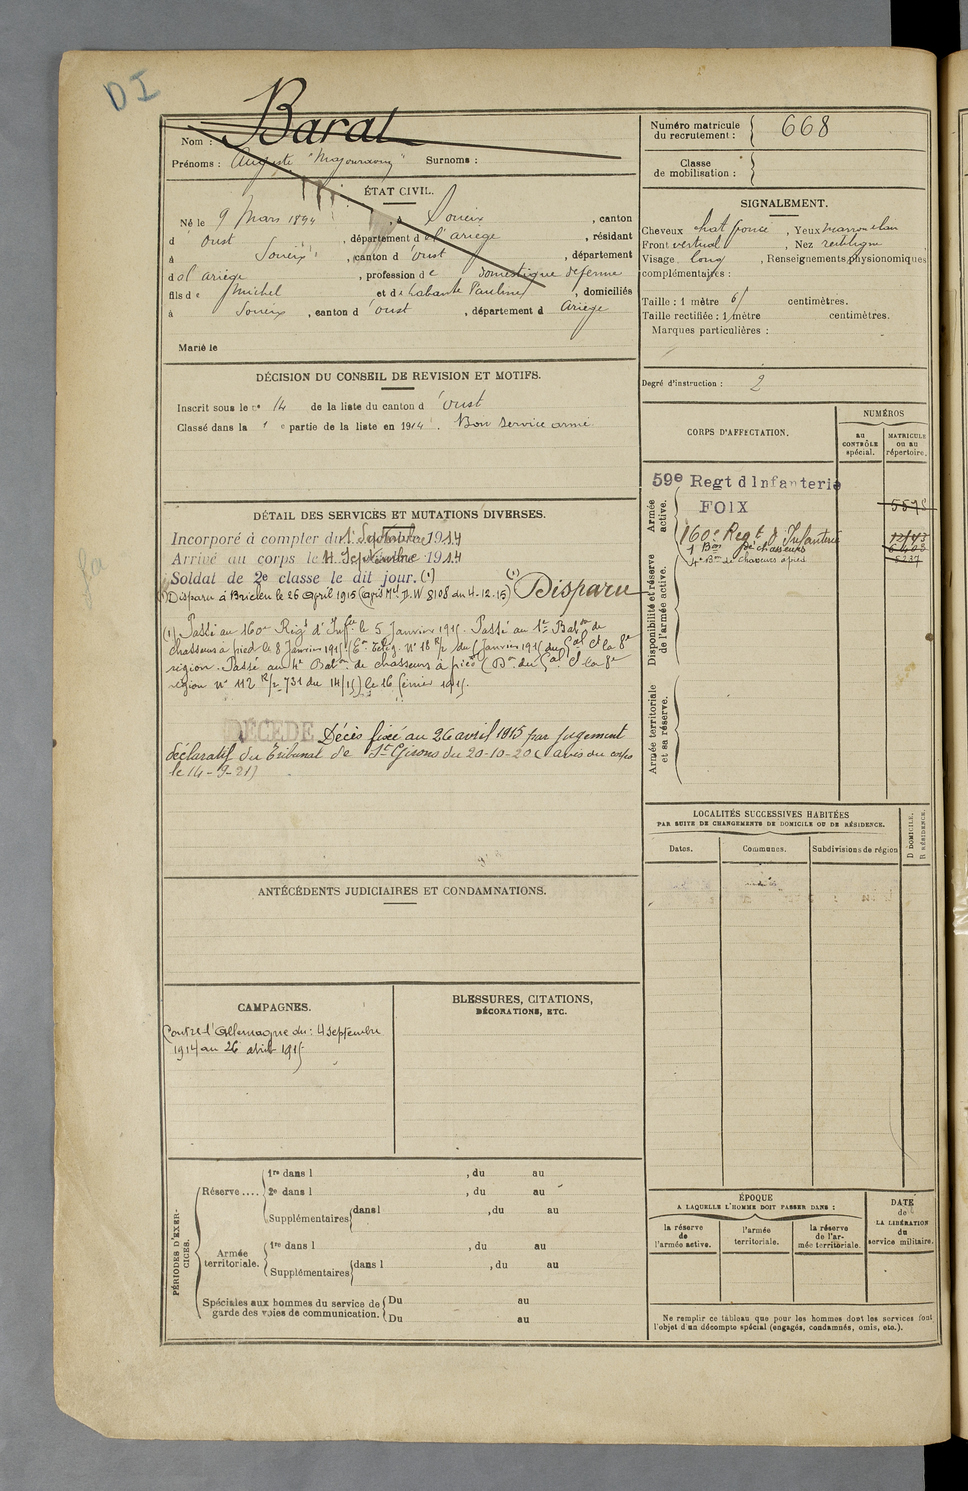 DI
Nom : Barat
Prénoms : Auguste "Majouraou" Surnoms :
ÉTAT CIVIL.
Né le 9 Mars 1894, à Soueix, canton
d'Oust, département de l'ariège, résidant
à Soueix, canton d'oust, département
d ol ariège, profession de domestique de ferme
fils de Michel et de Labante Pauline, domiciliés
à Soueix, canton d'oust, département d Ariège
Marié le
DÉCISION DU CONSEIL DE REVISION ET MOTIFS.
Inscrit sous le n° 14 de la liste du canton d'Oust
Classé dans la 1e partie de la liste en 1914. Bon service armé
DÉTAIL DES SERVICES ET MUTATIONS DIVERSES.
Incorporé à compter du 1er Septembre 1914
Arrivé au corps le 4 Septembre 1914
Soldat de 2e classe le dit jour. (1)
Disparu à Brielen le 26 April 1915 (après Mel D.W 8108 du 4-12-15) (1) Disparu
(1) Passé au 160e Régt d'Infie le 5 Janvier 1915. Passé au 1er Baton de
chasseurs à pied le 8 Janvier 1915 (En Télég. N° 18 R/2 du Janvier 1915 du Gal Ct la 8e
région. Passé au 4e Baton de chasseurs à pied (Dn du Gal Ct la 8e
région N° 112 R/2 731 du 14/15) le 16 février 1915.
DÉCÉDÉ Décès fixé au 26 avril 1915 par jugement
déclaratif du Tribunal de St Girons du 20-10-20 (avis du corps
le 14-9-21)
ANTÉCÉDENTS JUDICIAIRES ET CONDAMNATIONS.
CAMPAGNES.
Contre l'Allemagne du : 4 septembre
1914 au 26 avril 1915
BLESSURES, CITATIONS,
DÉCORATIONS, ETC.
PÉRIODES D'EXERCICES.
Réserve.... 1re dans l , du au
2e dans l , du au
Supplémentaires dans l , du au
Armée
territoriale. 1re dans l , du au
Supplémentaires dans l , du au
Spéciales aux hommes du service de
garde des voies de communication. Du au
Du au
Numéro matricule
du recrutement : 668
Classe
de mobilisation :
SIGNALEMENT.
Cheveux chat foncé, Yeux marron clair
Front vertical, Nez rectiligne
Visage long, Renseignements physionomiques
complémentaires :
Taille : 1 mètre 61 centimètres.
Taille rectifiée : 1 mètre centimètres.
Marques particulières :
Degré d'instruction : 2
CORPS D'AFFECTATION.
NUMÉROS
au
CONTRÔLE
spécial.
MATRICULE
ou au
répertoire.
Armée
active.
59e Regt d'Infanterie
FOIX
160e Regt d'Infanterie
1 Bon de chasseurs
4e Bon de chasseurs à pied
5237
Disponibilité et réserve
de l'armée active.
Armée territoriale
et sa réserve.
LOCALITÉS SUCCESSIVES HABITÉES
PAR SUITE DE CHANGEMENTS DE DOMICILE OU DE RÉSIDENCE.
Dates. Communes. Subdivisions de région
D DOMICILE.
R RÉSIDENCE.
ÉPOQUE
A LAQUELLE L'HOMME DOIT PASSER DANS :
la réserve
de
l'armée active.
l'armée
territoriale.
la réserve
de l'ar-
mée territoriale.
DATE
de
LA LIBÉRATION
du
service militaire.
Ne remplir ce tableau que pour les hommes dont les services font
l'objet d'un décompte spécial (engagés, condamnés, omis, etc.).